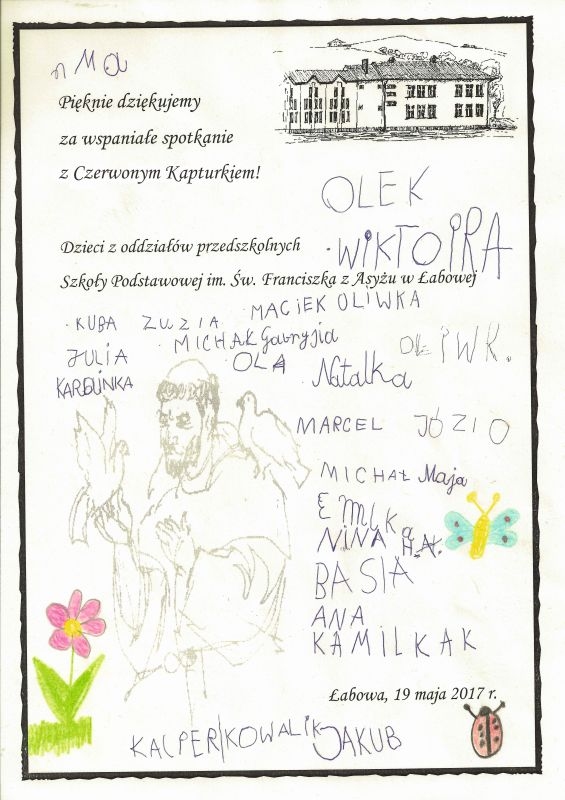 Pięknie dziękujemy
za wspaniałe spotkanie
z Czerwonym Kapturkiem!
OLEK
WIKTOIRA
Dzieci z oddziałów przedszkolnych
Szkoły Podstawowej im. Św. Franciszka z Asyżu w Łabowej
MACIEK OLIWKA
KUBA ZUZIA
MICHAŁ Gawryjia
JULIA
OLA
KAROLINKA
Natalka
MARCEL JÓZIO
MICHAŁ Maja
EMILKA
NINA H.A.
BASIA
ANA
KAMILKAK
Łabowa, 19 maja 2017 r.
KACPER KOWALIK JAKUB